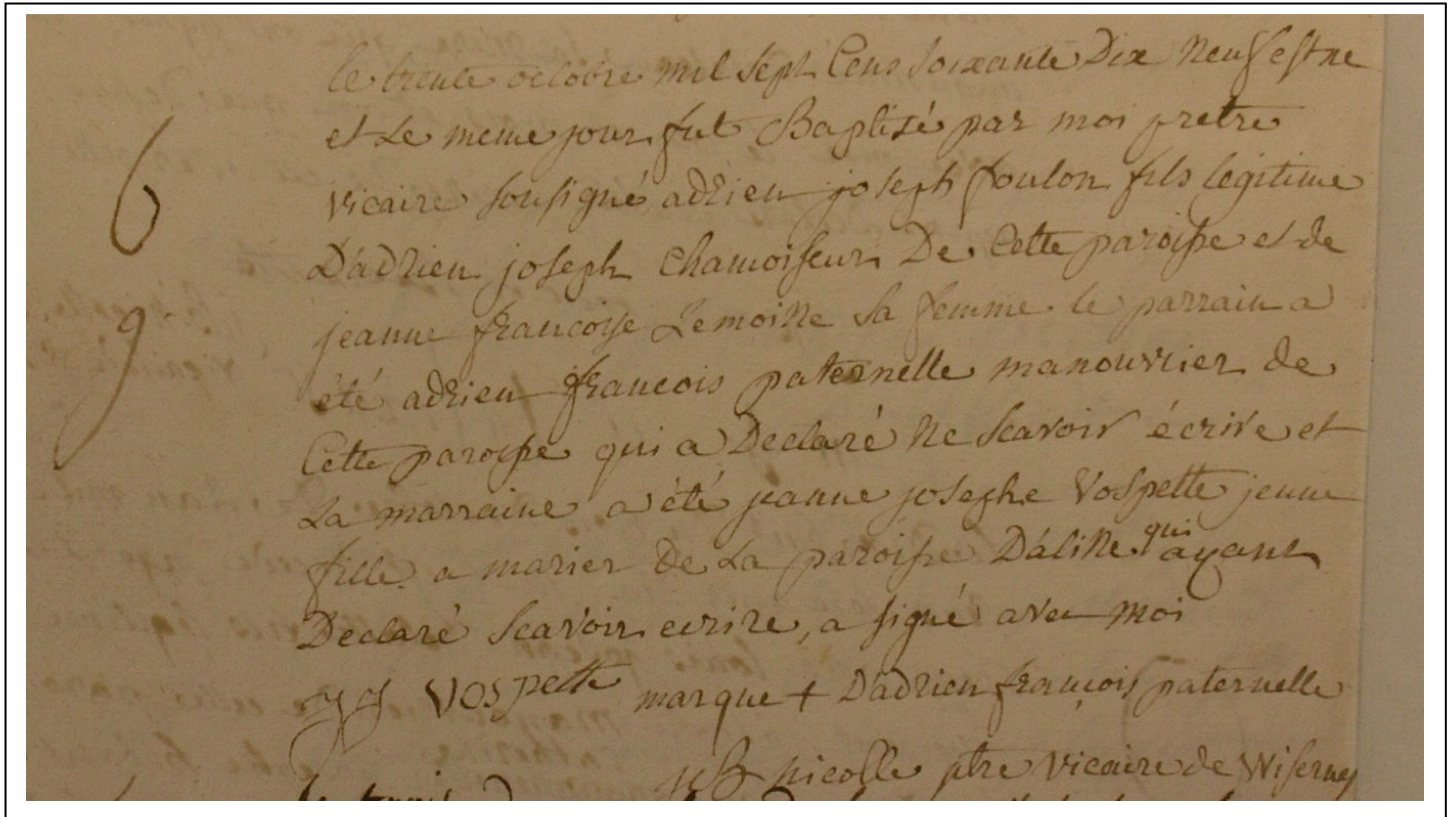 le trente octobre mil sept Cens soixante Dix neuf est ne
et Le meme jour fut Baptisé par moi pretre
vicaire sousigné adrien joseph foulon fils legitime
D'adrien joseph Chamoiseur De Cette paroisse et de
jeanne francoise Lemoine sa femme. le parrain a
été adrien francois paternelle manouvrier de
Cette paroisse qui a Declaré ne scavoir écrire et
La marraine a été jeanne josephe Vospette jeune
fille a marier de La paroisse D'aline qui ayant
Declaré scavoir ecrire, a signé avec moi
JJ Vospette marque + D'adrien françois paternelle
nicolle ptre vicaire de Wisernes
6
9